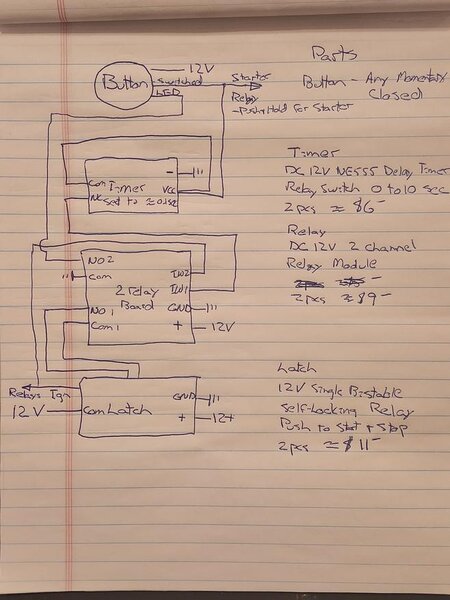 Parts
12V
Button
Switched
LED
Starter
Relay
-Push+Hold For Starter
Button - Any Momentary
Closed
Timer
DC 12V NE555 Delay Timer
Relay Switch 0 to 10 sec
2pcs ≈ $6-
Com
NC
Timer
Set to ≈ 0.1sec
-
VCC
Relay
DC 12V 2 channel
Relay Module
2pcs ≈ $9-
NO2
Com
NO1
Com1
2 Relay
Board
IN2
IN1
GND
+
12V
Latch
12V Single Bistable
Self-Locking Relay
Push to Start + Stop
2pcs ≈ $11-
Relays Ign
12V
Com Latch
GND
+
12+